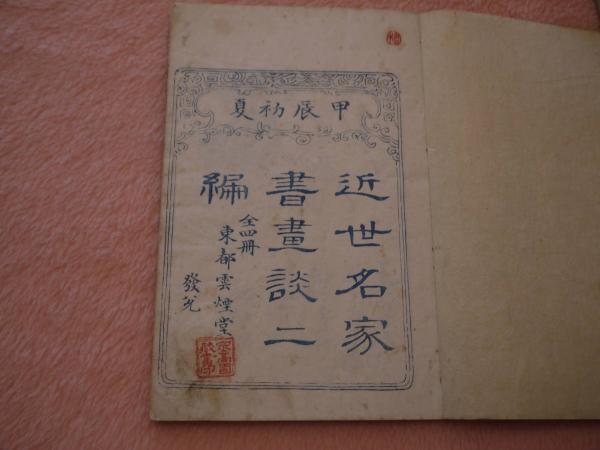 甲辰初夏
近世名家
書畫談二
編
全四冊
東都雲煙堂
發兌